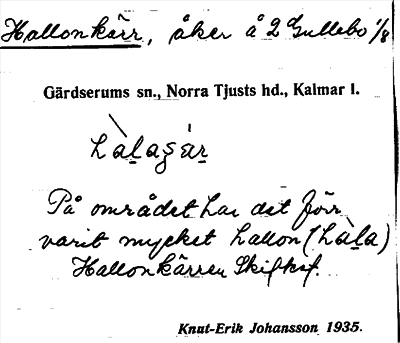 Hallonkärr, åker å 2 Gullebo 1/8
Gärdserums sn., Norra Tjusts hd., Kalmar l.
På området har det förr
varit mycket hallon (
Hallonkärren Skifksf.
Knut-Erik Johansson 1935.